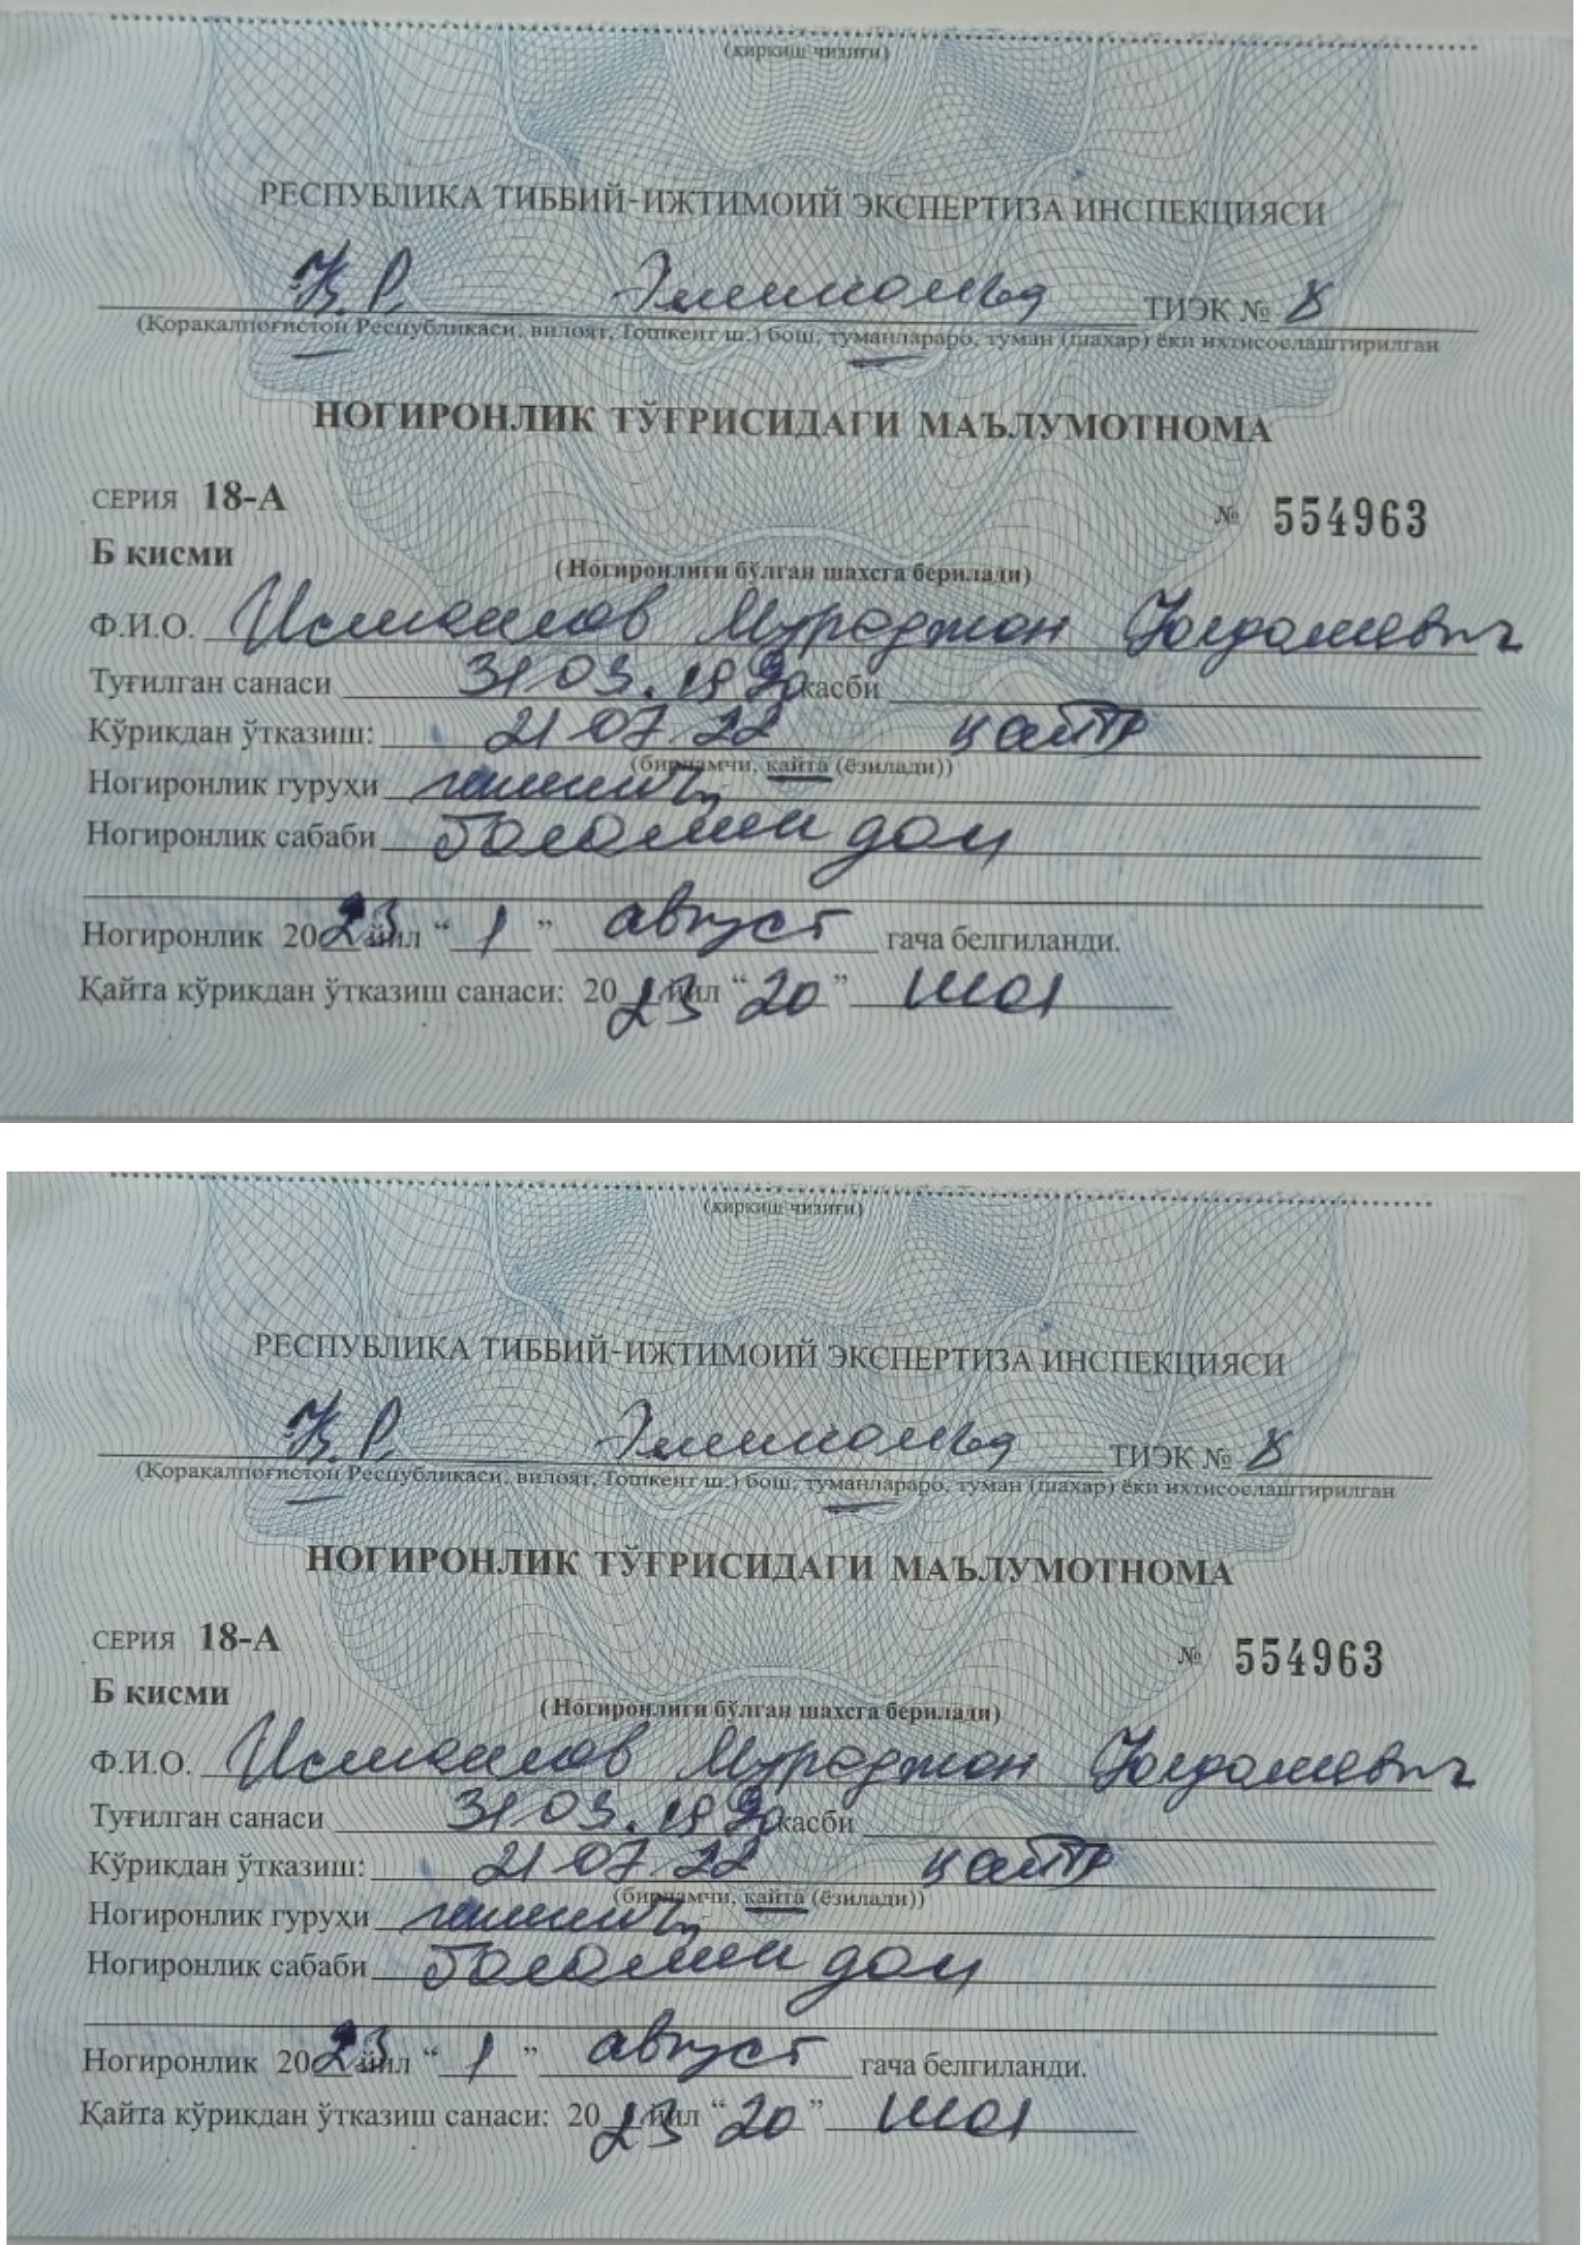 (кирқиш чизиғи)
РЕСПУБЛИКА ТИББИЙ-ИЖТИМОИЙ ЭКСПЕРТИЗА ИНСПЕКЦИЯСИ
Қ.Р. ТИЭК № 8
(Қорақалпоғистон Республикаси, вилоят, Тошкент ш.) бош, туманлараро, туман (шаҳар) ёки ихтисослаштирилган
НОГИРОНЛИК ТЎҒРИСИДАГИ МАЪЛУМОТНОМА
СЕРИЯ 18-А № 554963
Б қисми
(Ногиронлиги бўлган шахсга берилади)
Ф.И.О. Исмаилов Мураджон Юлдашевич
Туғилган санаси 31 03. 19 90 касби
Кўрикдан ўтказиш: 21 07. 22 қайта
(бирламчи, қайта (ёзилади))
Ногиронлик гуруҳи
Ногиронлик сабаби болаликдан
Ногиронлик 2023 йил “ 1 ” август гача белгиланди.
Қайта кўрикдан ўтказиш санаси: 2023 йил “20” июл
(кирқиш чизиғи)
РЕСПУБЛИКА ТИББИЙ-ИЖТИМОИЙ ЭКСПЕРТИЗА ИНСПЕКЦИЯСИ
Қ.Р. ТИЭК № 8
(Қорақалпоғистон Республикаси, вилоят, Тошкент ш.) бош, туманлараро, туман (шаҳар) ёки ихтисослаштирилган
НОГИРОНЛИК ТЎҒРИСИДАГИ МАЪЛУМОТНОМА
СЕРИЯ 18-А № 554963
Б қисми
(Ногиронлиги бўлган шахсга берилади)
Ф.И.О. Исмаилов Мураджон Юлдашевич
Туғилган санаси 31 03. 19 90 касби
Кўрикдан ўтказиш: 21 07. 22 қайта
(бирламчи, қайта (ёзилади))
Ногиронлик гуруҳи
Ногиронлик сабаби болаликдан
Ногиронлик 2023 йил “ 1 ” август гача белгиланди.
Қайта кўрикдан ўтказиш санаси: 2023 йил “20” июл